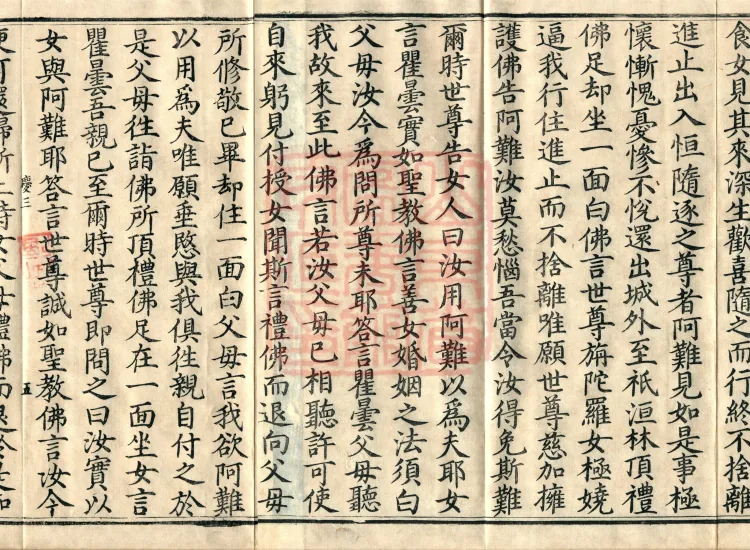 食女見其來深生歡喜隨之而行終不捨離
進止出入恒隨逐之尊者阿難見如是事極
懷慚愧憂慘不悅還出城外至祇洹林頂禮
佛足却坐一面白佛言世尊旃陀羅女極嬈
逼我行住進止而不捨離唯願世尊慈加擁
護佛告阿難汝莫愁惱吾當令汝得免斯難
爾時世尊告女人曰汝用阿難以爲夫耶女
言瞿曇實如聖教佛言善女婚姻之法須白
父母汝今爲問所尊未耶答言瞿曇父母聽
我故來至此佛言若汝父母已相聽許可使
自來躬見付授女聞斯言禮佛而退向父母
所修敬已畢却住一面白父母言我欲阿難
以用爲夫唯願垂愍與我俱往親自付之於
是父母往詣佛所頂禮佛足在一面坐女言
瞿曇吾親已至爾時世尊即問之曰汝實以
慶三 五
女與阿難耶答言世尊誠如聖教佛言汝今
便可還歸所止時女父母禮佛而退於是如